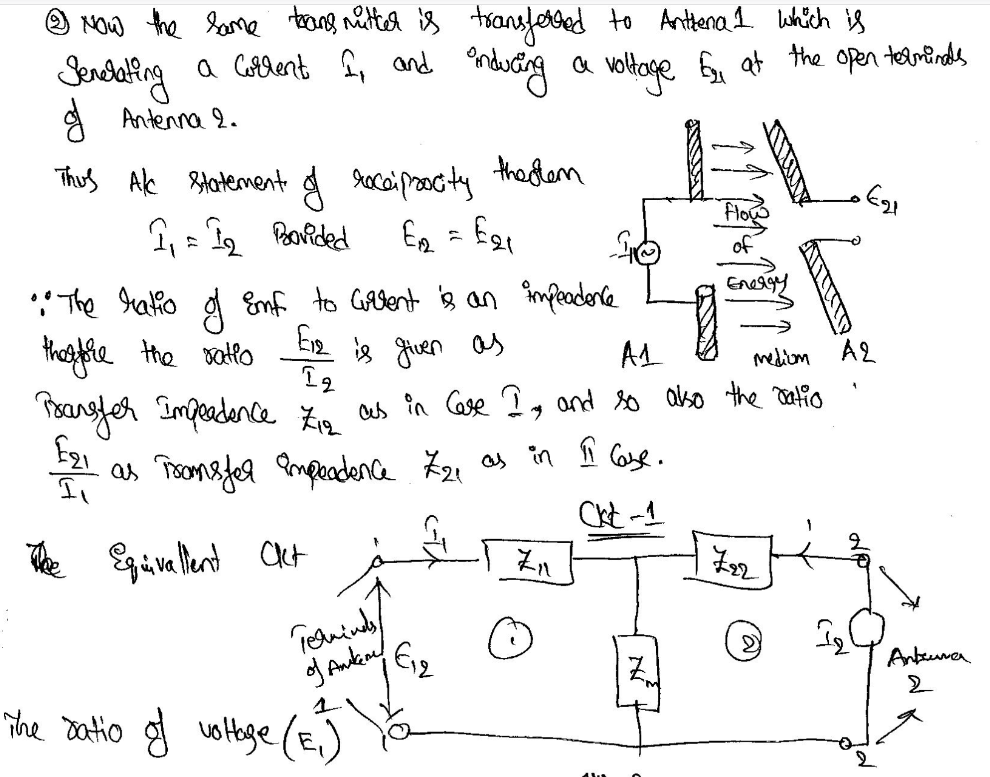 ② Now the same transmitter is transferred to Anttena 1 which is
generating a current I₁ and inducing a voltage E₂₁ at the open terminals
of Antenna 2.
Thus A/c statement of reciprocity theorem
I₁ = I₂ Provided E₁₂ = E₂₁
∵ The ratio of Emf to current is an impeadence
therefore the ratio E₁₂/I₂ is given as
Transfer Impeadence Z₁₂ as in Case I, and so also the ratio
E₂₁/I₁ as Transfer impeadence Z₂₁ as in II Case.
I₁
Flow
of
Energy
medium
E₂₁
A1
A2
Ckt-1
The Equivallent Ckt
1
I₁
Z₁₁
Z₂₂
1
2
Terminals
of Antenna
1
E₁₂
①
Zm
②
I₂
Antenna
2
The ratio of voltage (E₁)
1
2